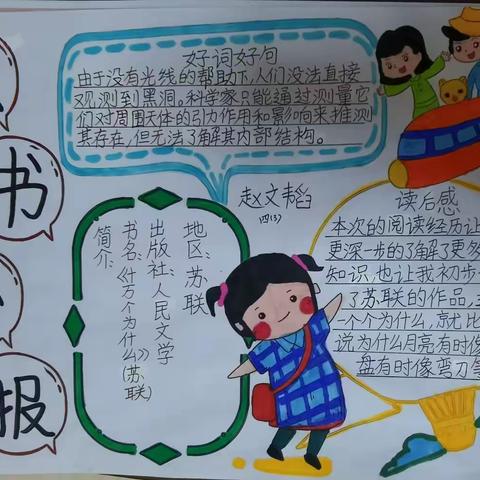 书
报
好词好句
由于没有光线的帮助下,人们没法直接
观测到黑洞。科学家只能通过测量它
们对周围天体的引力作用和影响来推测
其存在,但无法了解其内部结构。
赵文韬
四(3)
地区:苏联
出版社:人民文学
书名:《十万个为什么》(苏联)
简介:
读后感
本次的阅读经历让
更深一步的了解了更多
知识,也让我初步
了苏联的作品,
个个为什么,就比
说为什么月亮有时像
盘有时像弯刀等